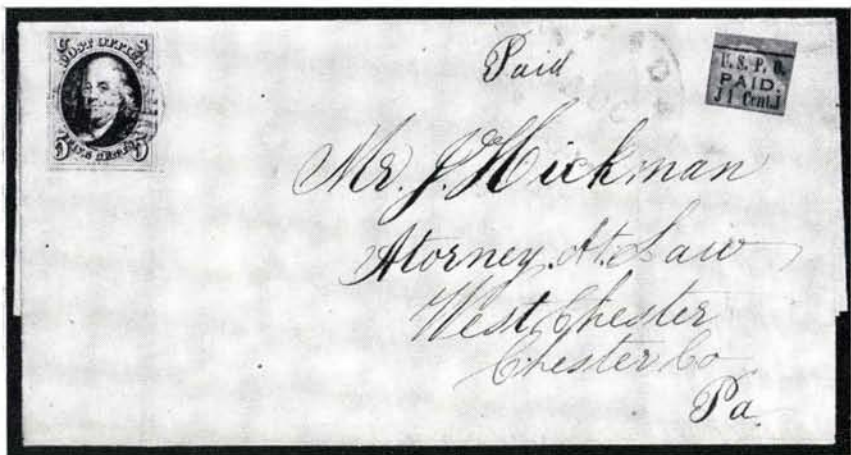 POST OFFICE
FIVE CENTS
5 5
Paid
U.S.P.O.
PAID.
J 1 Cent. J
Mr. J. Hickman
Atorney. At. Law
West, Chester
Chester Co
Pa.